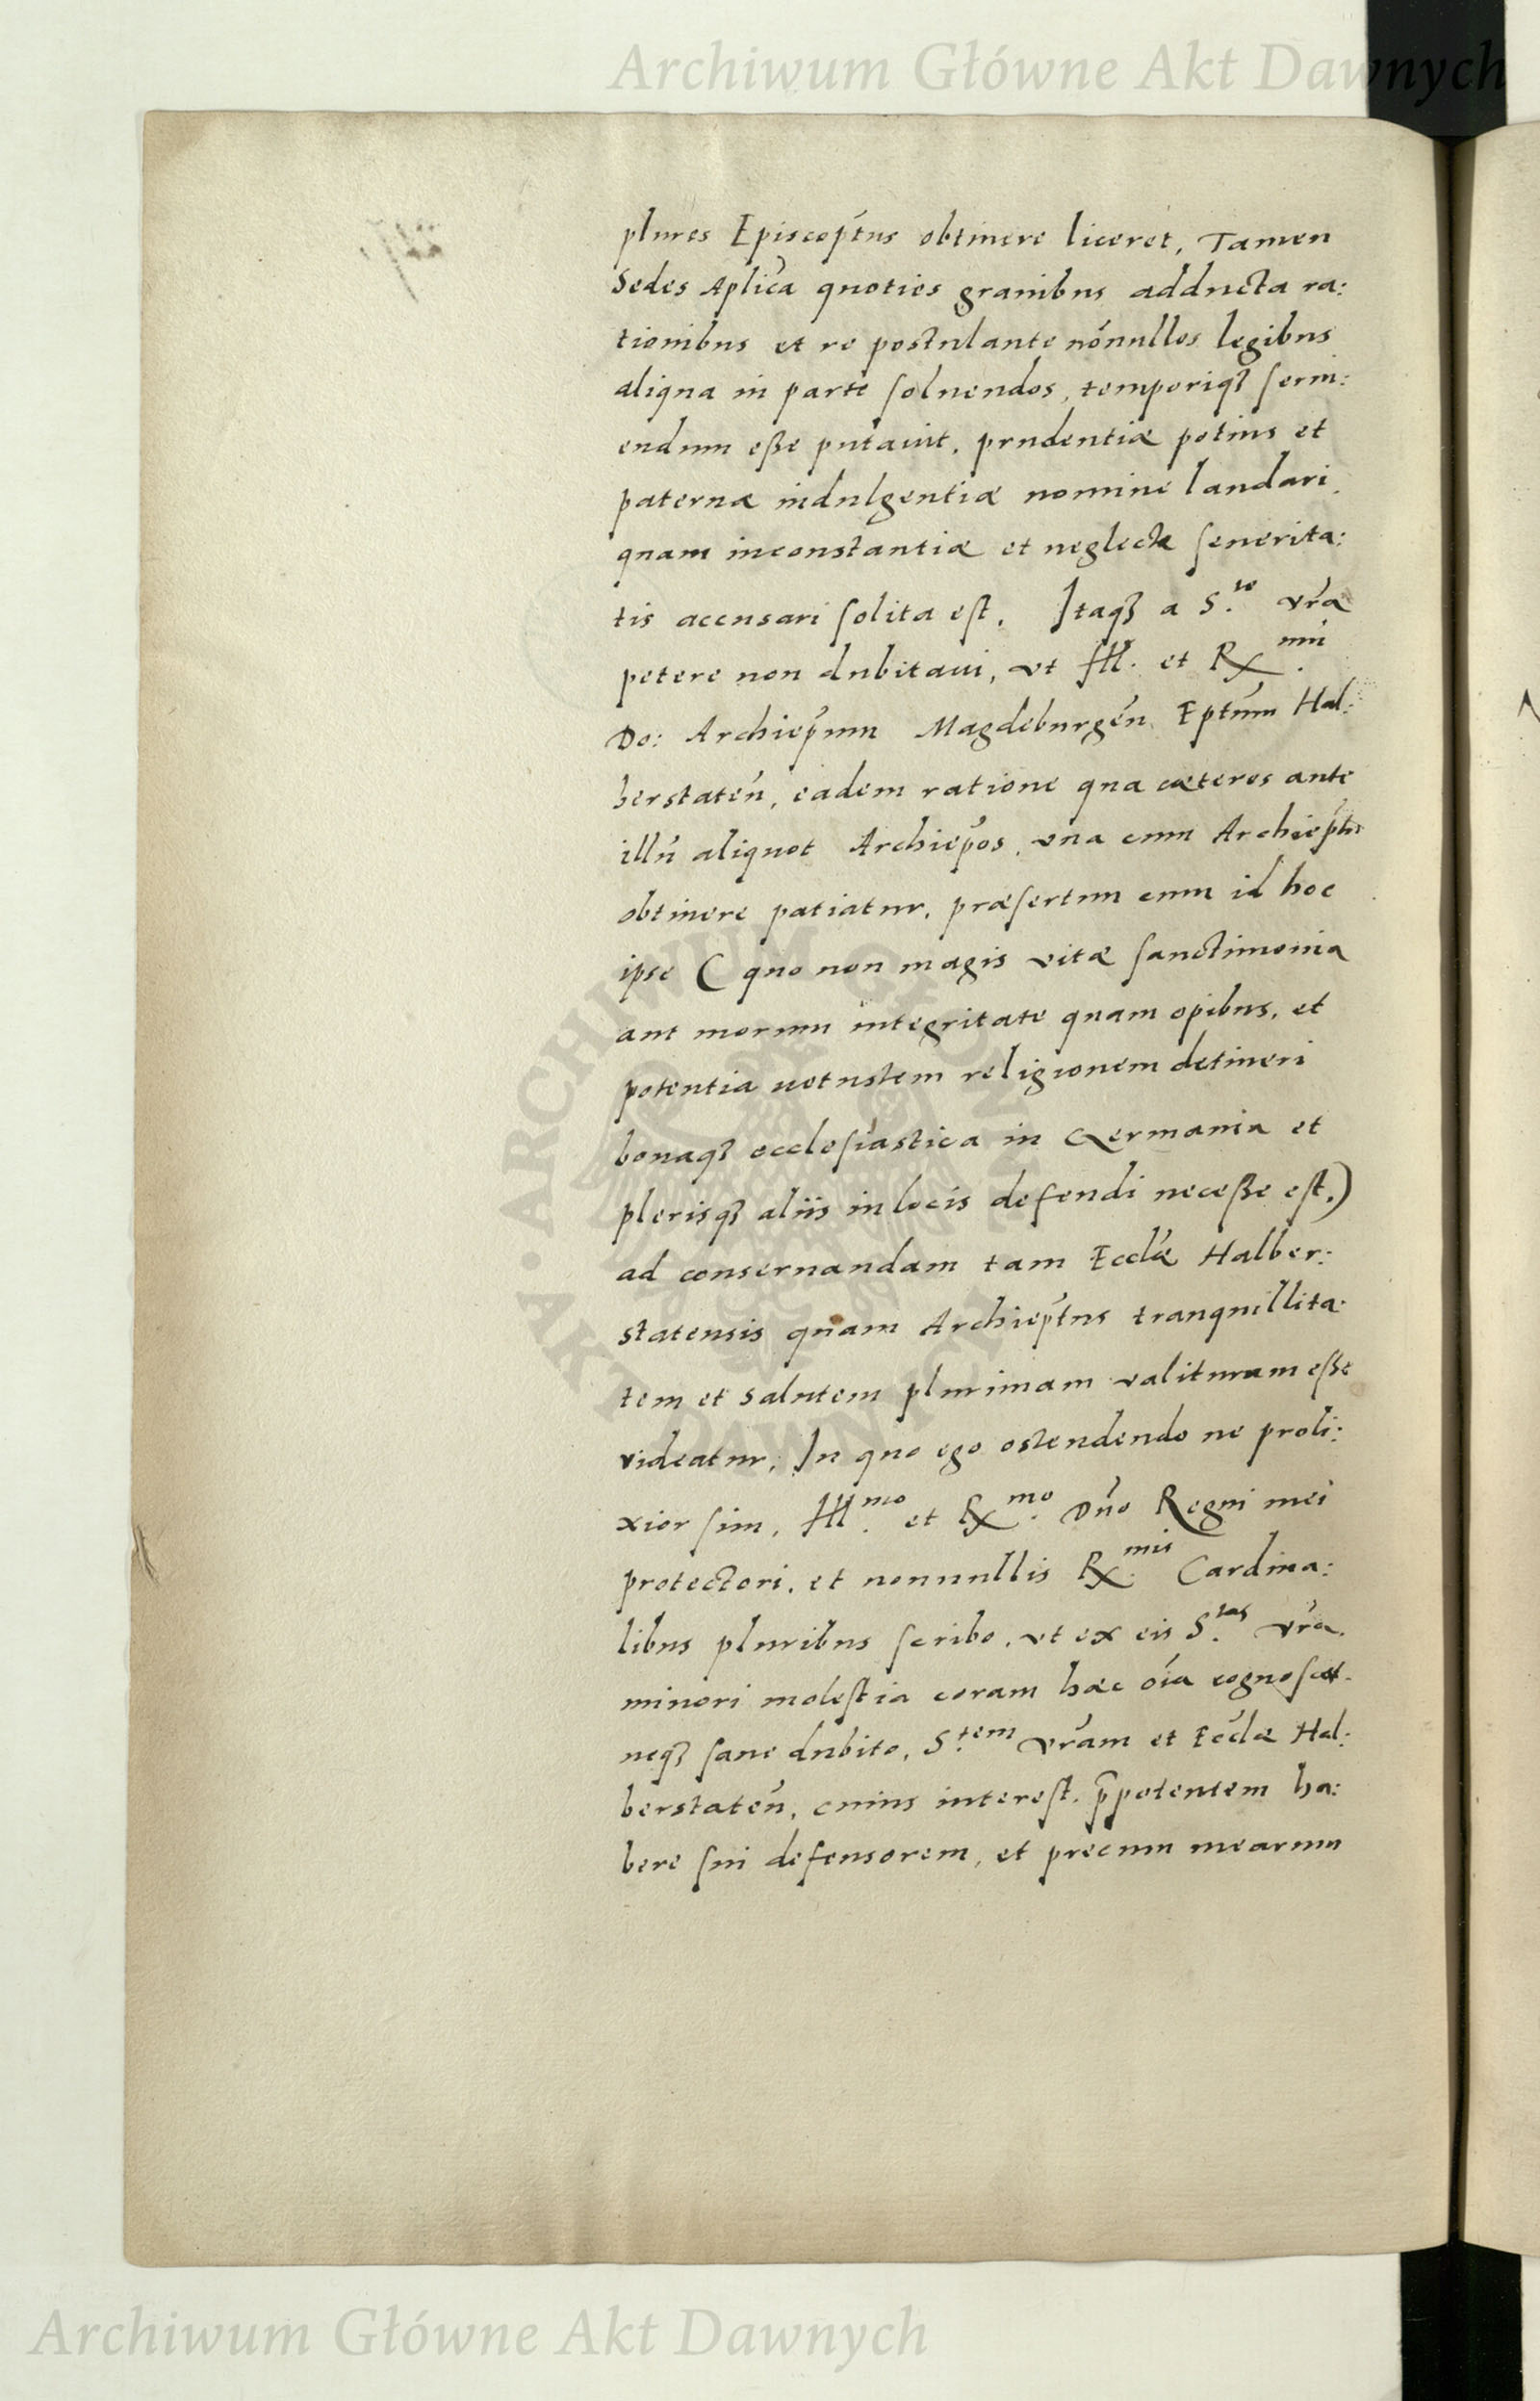 Archiwum Główne Akt Dawnych
plures Episcop̃tus obtinere liceret, Tamen
Sedes Aplica quoties grauibus adducta ra:
tionibus et re postulante nónnullos legibus
aliqua in parte soluendos, temporiqȝ serui:
endum eße putauit, prudentiæ potius et
paternæ indulgentiæ nomine laudari,
quam inconstantiæ et neglectæ seuerita:
tis accusari solita est. Itaqȝ a S.te vr̃a
petere non dubitaui, vt Ill. et R.mũ
Do: Archiep̃um Magdeburgeñ Ep̃tum Hal:
berstateñ, eadem ratione qua cæteros ante
illũ aliquot Archiep̃os, vna cum Archiep̃tu
obtinere patiatur, præsertim cum id hoc
ipse ( quo non magis vitæ sanctimonia
aut morum integritate quam opibus, et
potentia uetustem religionem detineri
bonaqȝ ecclesiastica in Germania et
plerisqȝ aliis in locis defendi neceße est.)
ad conseruandam tam Eccl̃æ Halber:
statensis quam Archiep̃tus tranquillita:
tem et salutem plurimam valituram eße
videatur, In quo ego ostendendo ne proli:
xior sim, Ill.mo et R.mo Dño Regni mei
protectori, et nonnullis R.mis Cardina:
libus pluribus scribo, vt ex eis S.tas vr̃a
minori molestia coram hæc oĩa cognoscat.
neqȝ sane dubito, S.tem vr̃am et Eccl̃æ Hal:
berstateñ, cuius interest, p̃potentem ha:
bere sui defensorem, et precum mearum
ARCHIWUM GŁÓWNE AKT DAWNYCH
Archiwum Główne Akt Dawnych